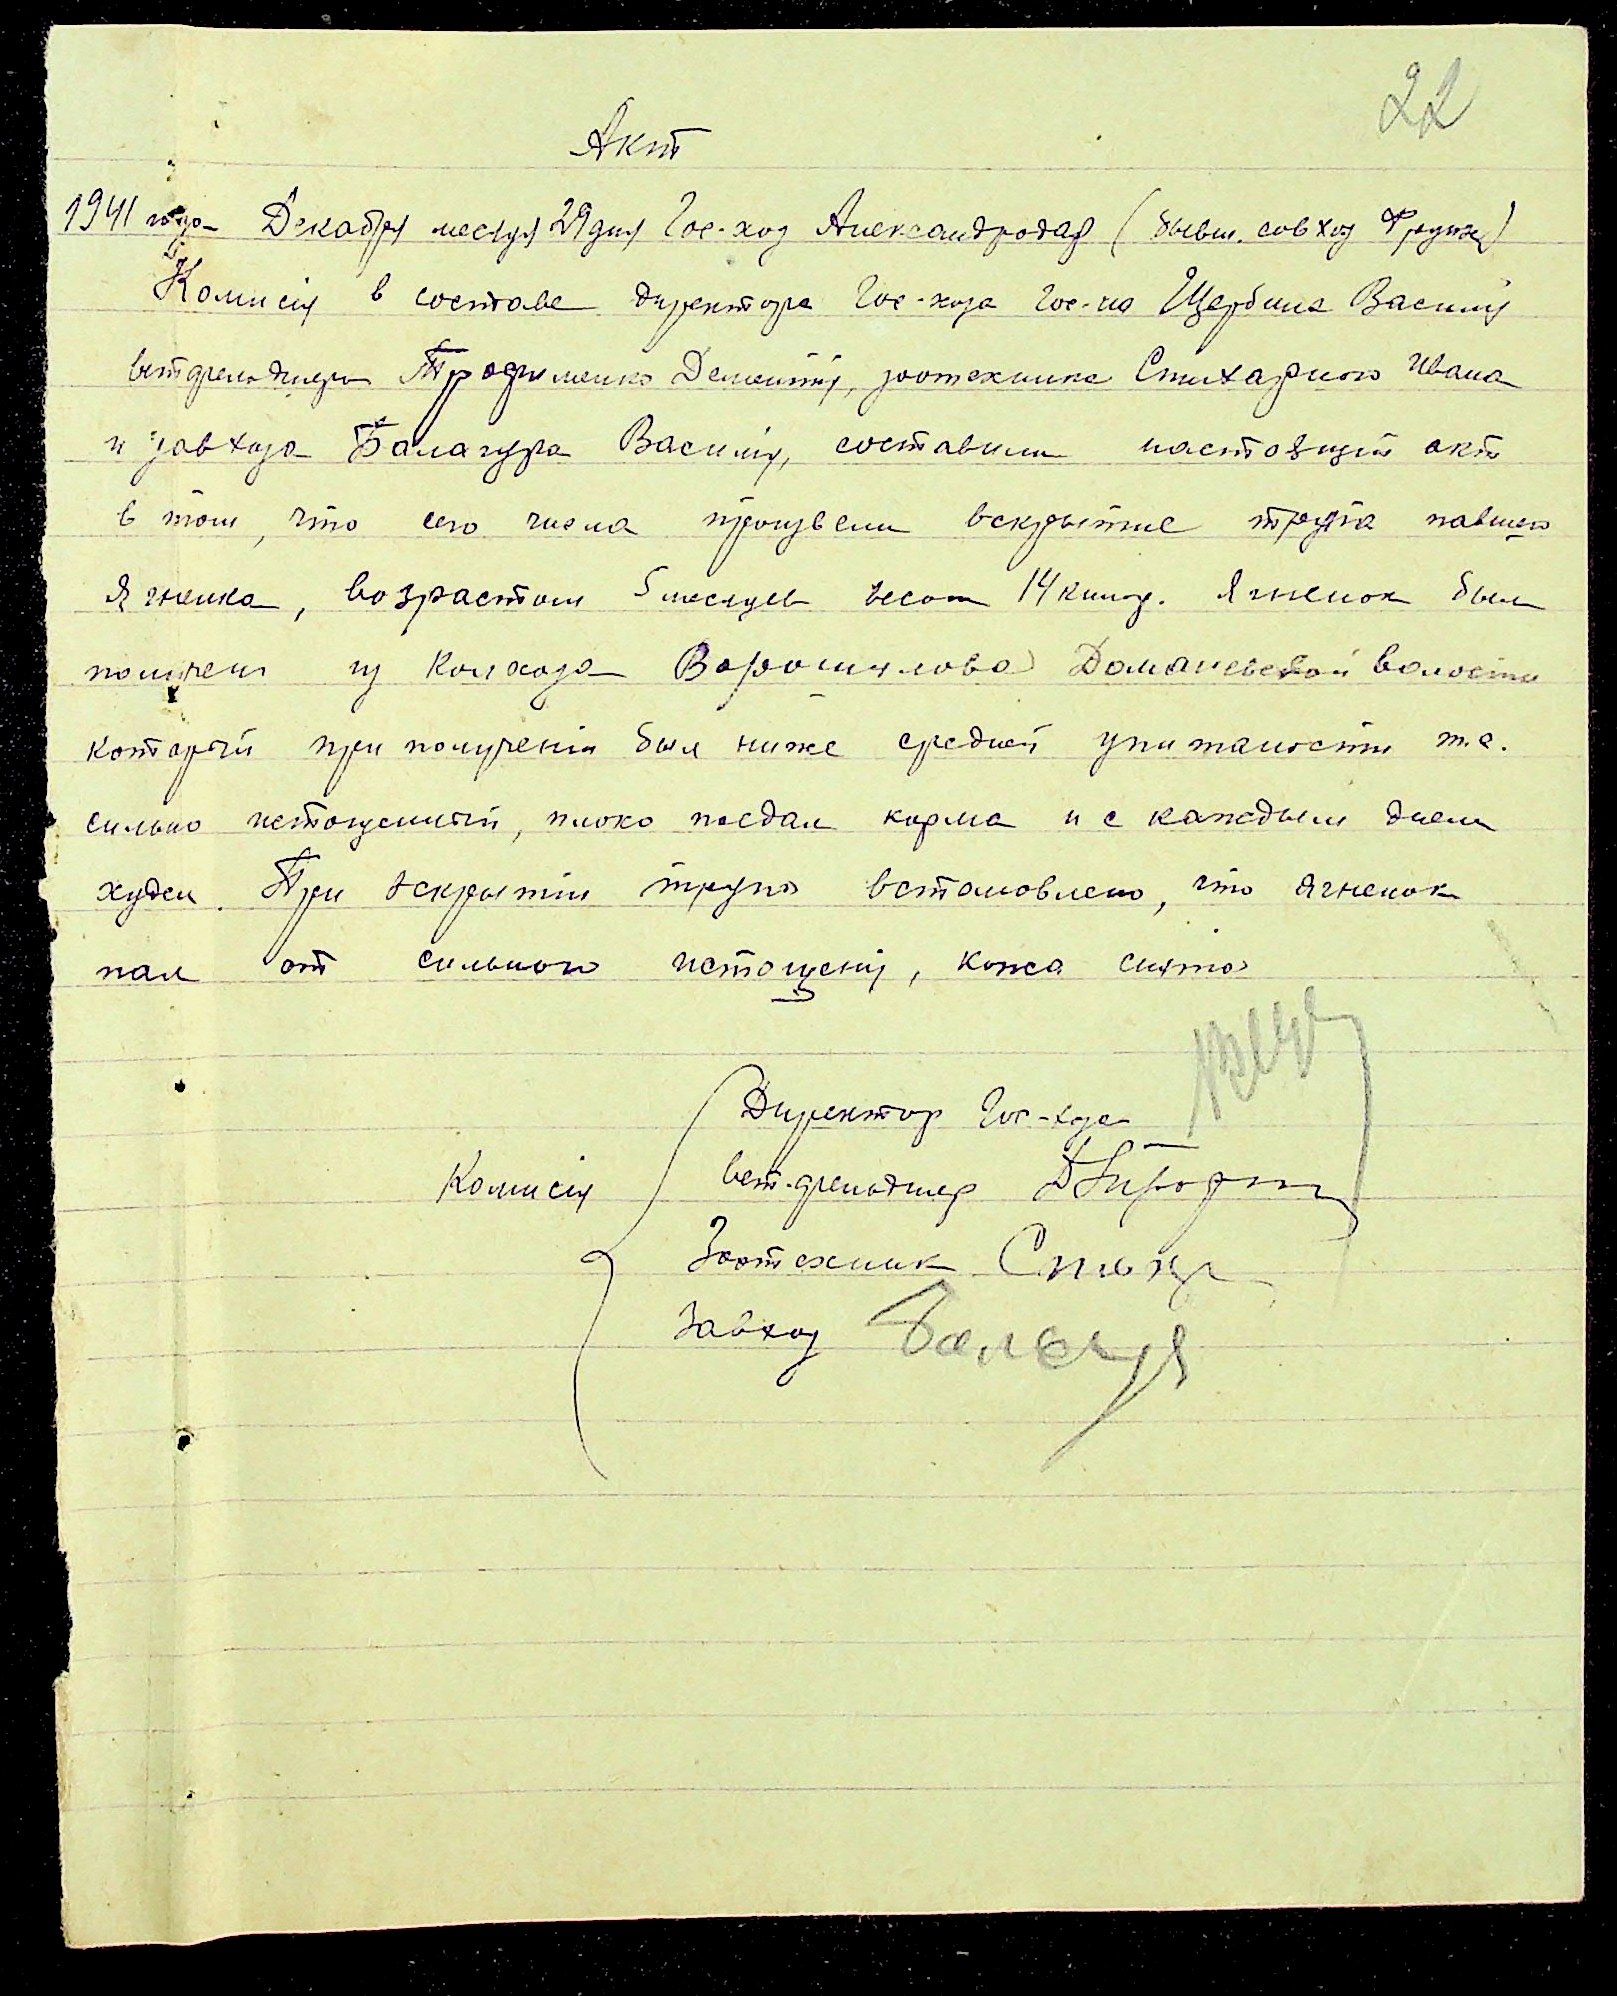 22
Акт
1941 года Декабря месяца 29 дня Гос-хоз Александродар (бывш. совхоз Фрунзе)
Комисия в составе директора Гос-хоза Гос-на Щербина Василия
ветфельдшера Трофименко Дементия, зоотехника Стихарного Ивана
и завхоза Балагура Василия, составили настоящий акт
в том, что сего числа произвели вскрытие трупа павшего
ягненка, возрастом 5 месяцев весом 14 килогр. Ягненок был
получен из Колхоза Ворошилова Доманевской волости
который при получении был ниже средней упитаности т.е.
сильно истощенный, плохо поедал корма и с каждым днем
худел. При вскрытии трупа встановлено, что ягненок
пал от сильного истощения, кожа снята
Директор Гос-хоза
Комисия вет.фельдшер ДТрофим
Зоотехник Стиха
Завхоз Балагур